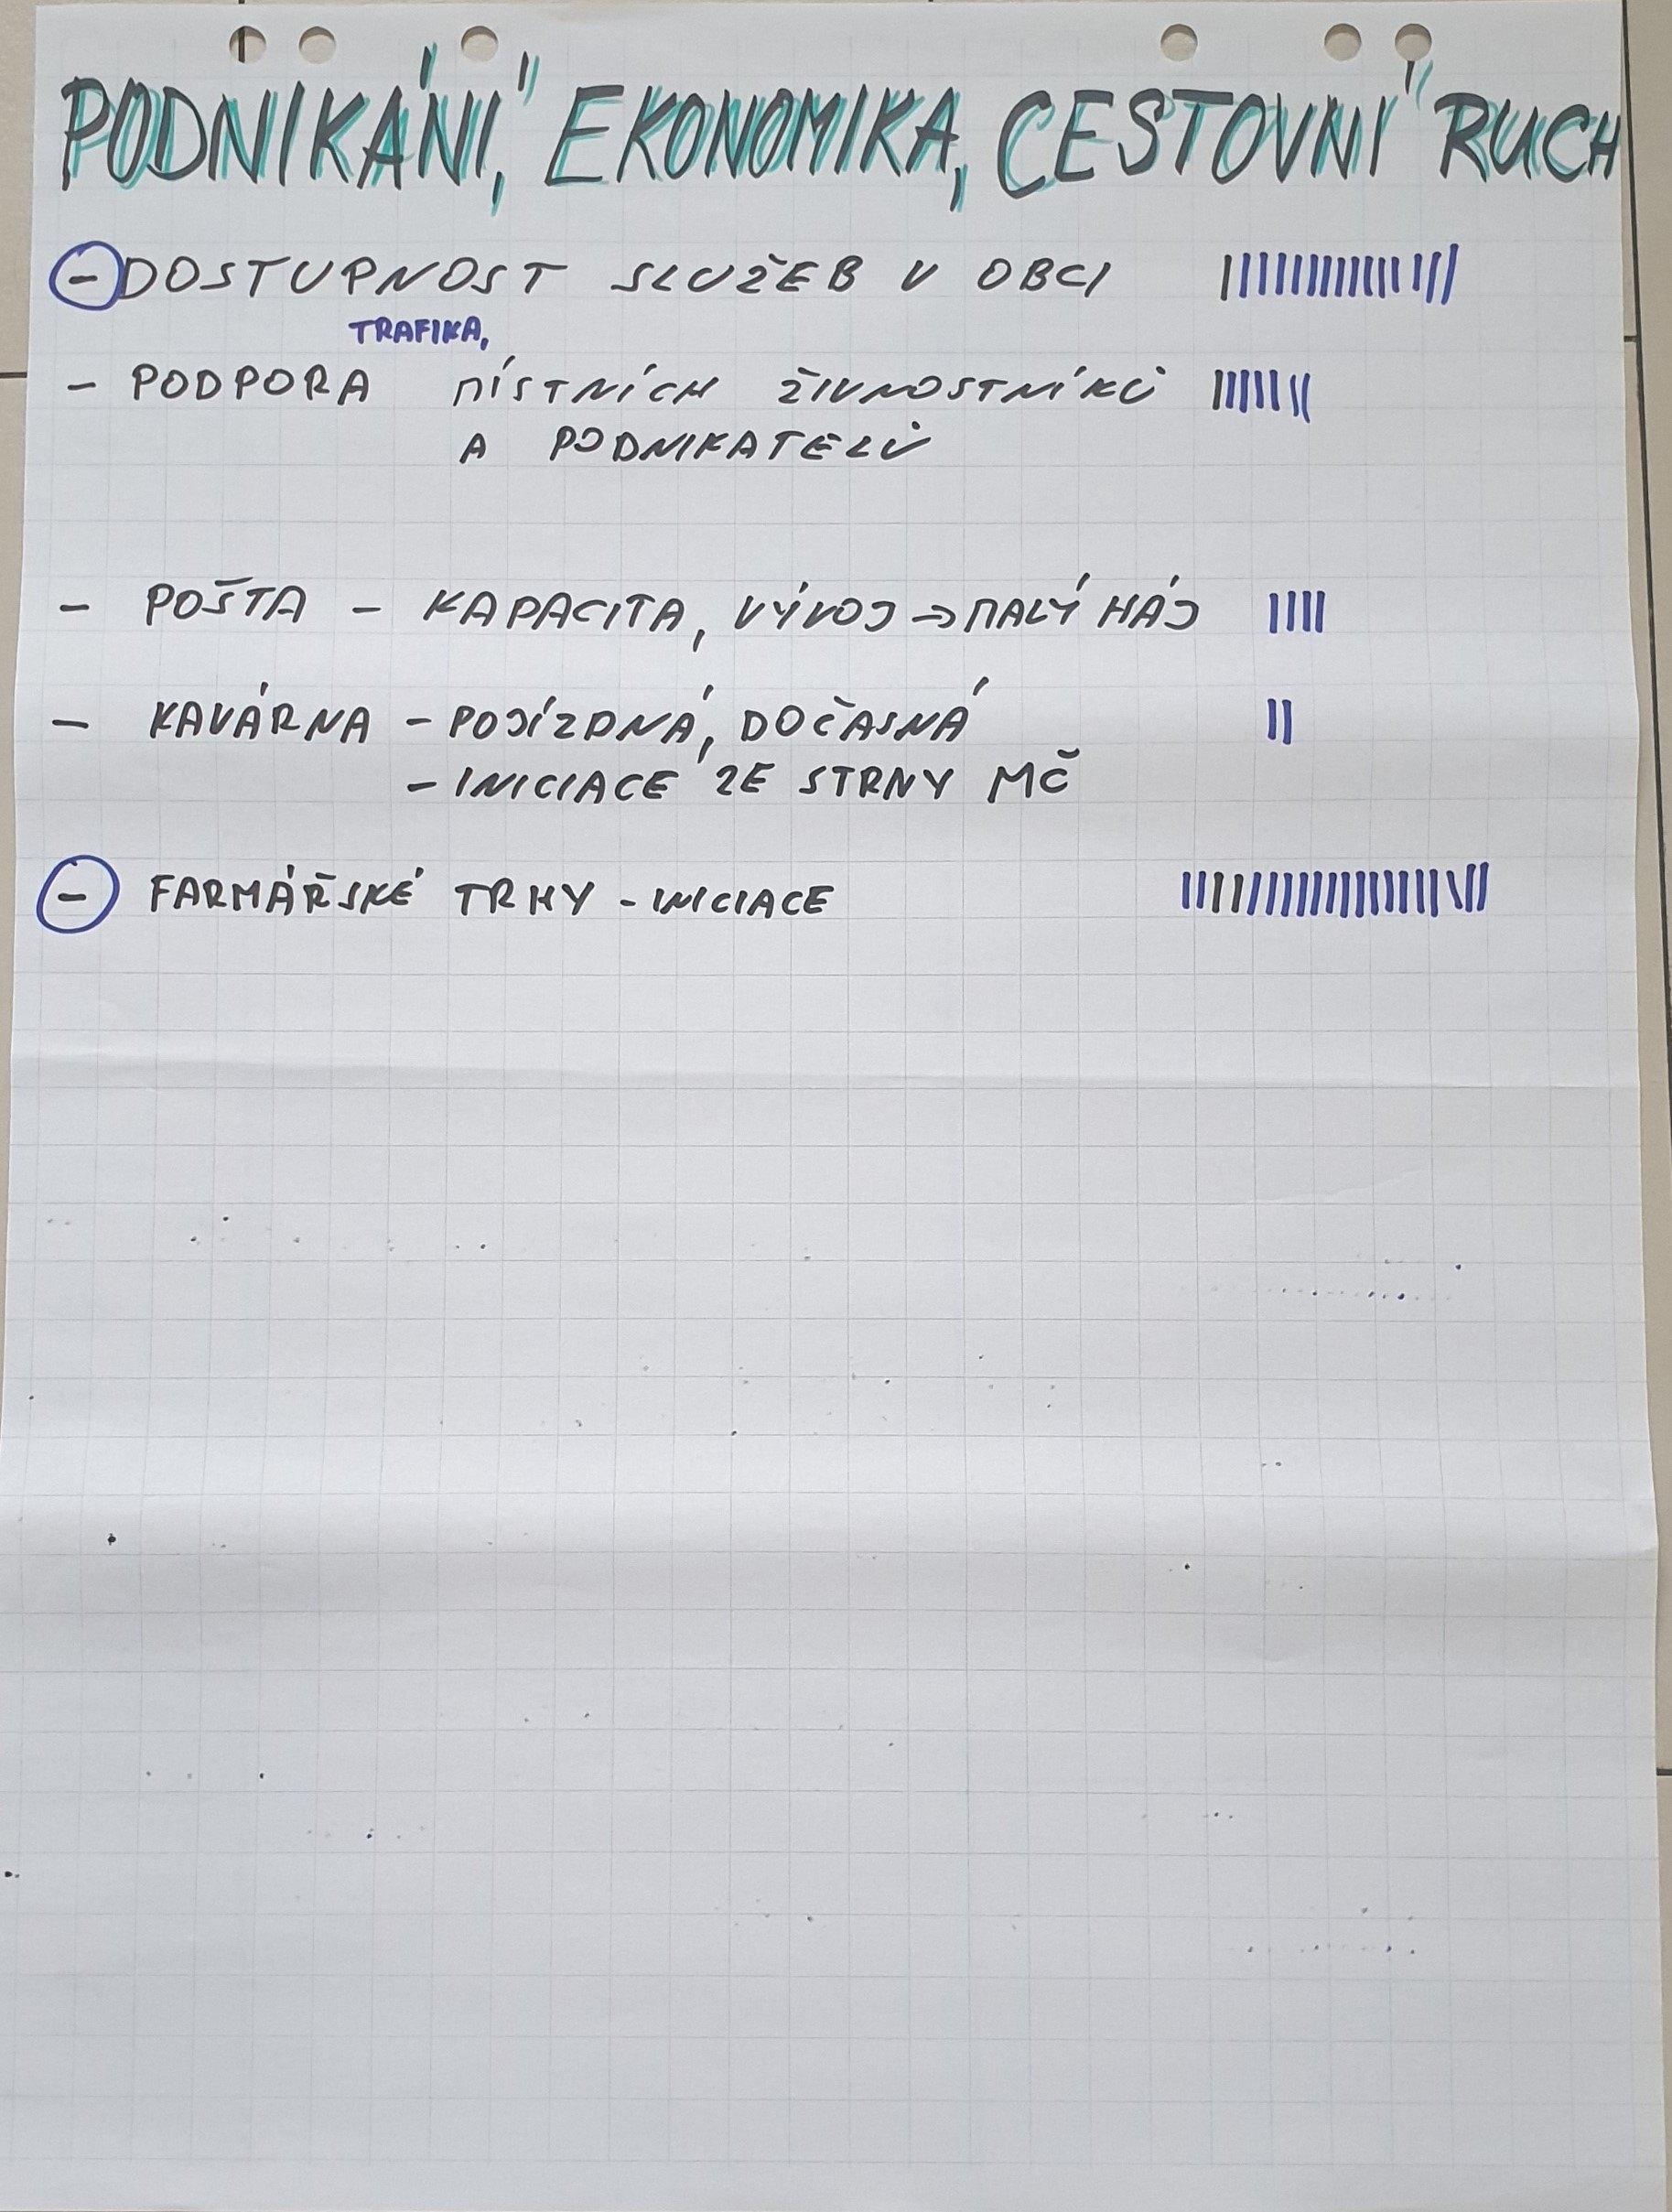 PODNIKÁNÍ, EKONOMIKA, CESTOVNÍ RUCH
- DOSTUPNOST SLUŽEB V OBCI
TRAFIKA,
- PODPORA MÍSTNÍCH ŽIVNOSTNÍKŮ
A PODNIKATELŮ
- POŠTA - KAPACITA, VÝVOJ → MALÝ HÁJ
- KAVÁRNA - POJÍZDNÁ, DOČASNÁ
- INICIACE ZE STRNY MČ
- FARMÁŘSKÉ TRHY - INICIACE